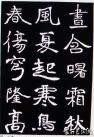 晝含曙霜秋
風夏起乘鳥
春穹隆高